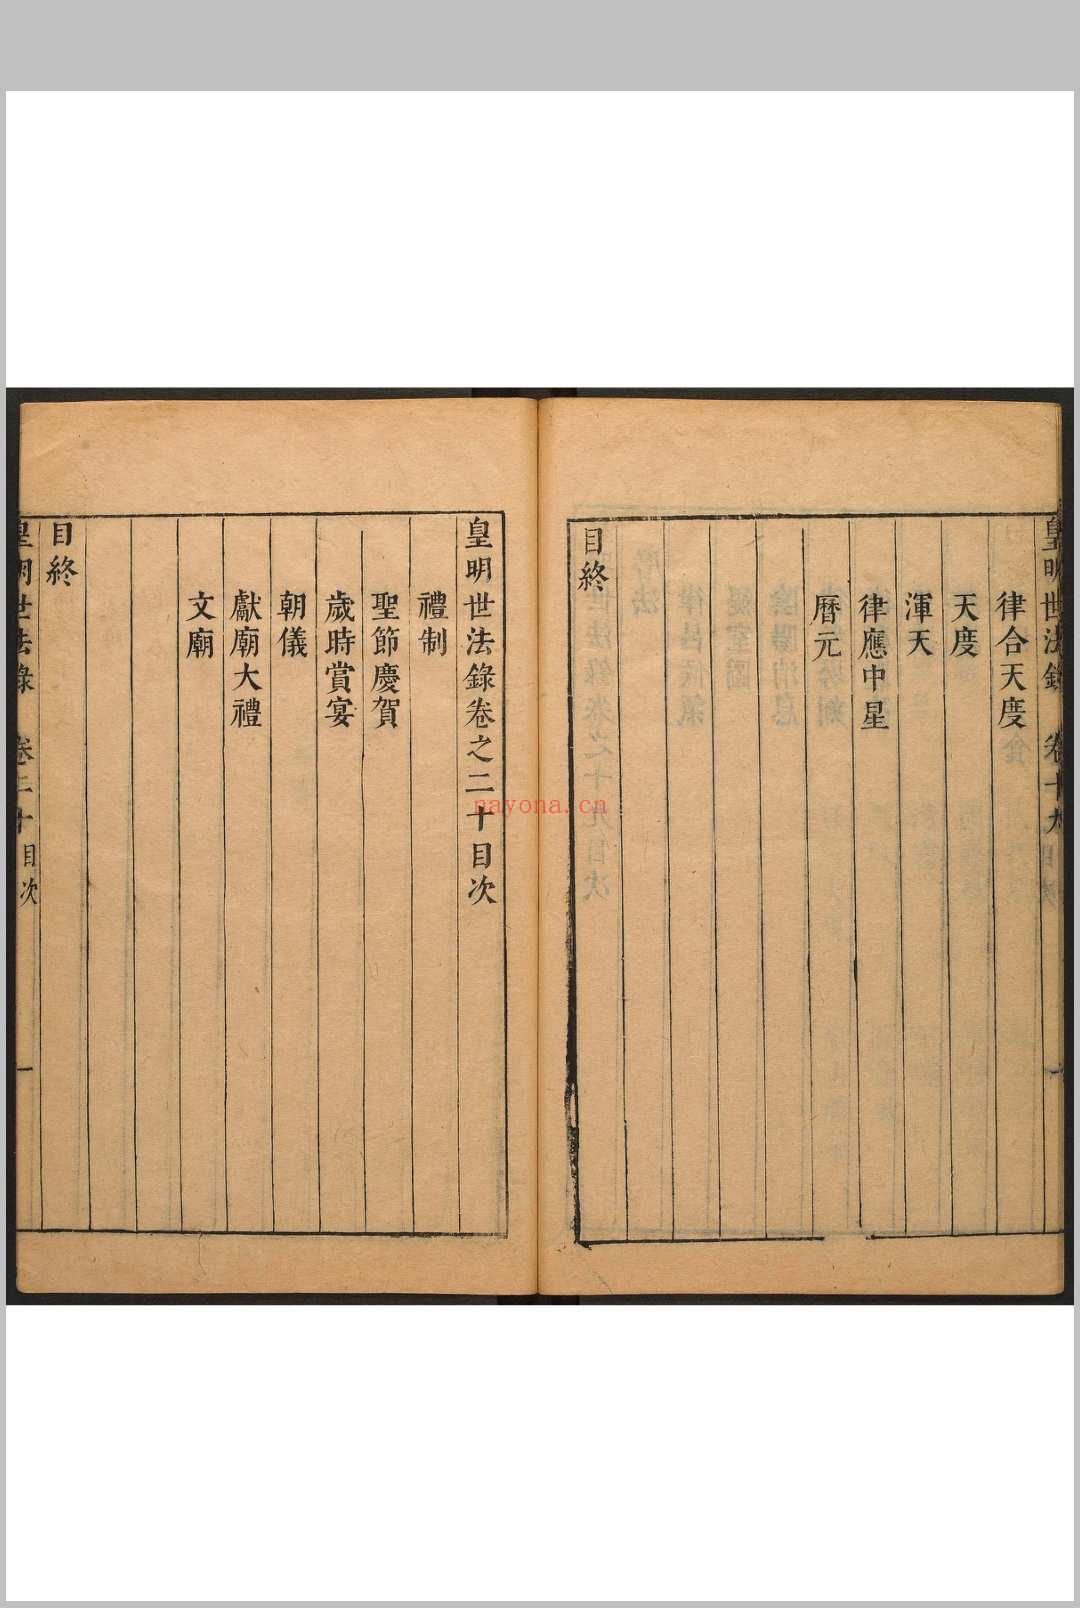 皇明世法錄 卷十九目次
律合天度
天度
渾天
律應中星
曆元
目終
皇明世法錄卷之二十目次
禮制
聖節慶賀
歲時賞宴
朝儀
獻廟大禮
文廟
目終
皇明世法錄 卷二十目次 一
nayona.cn